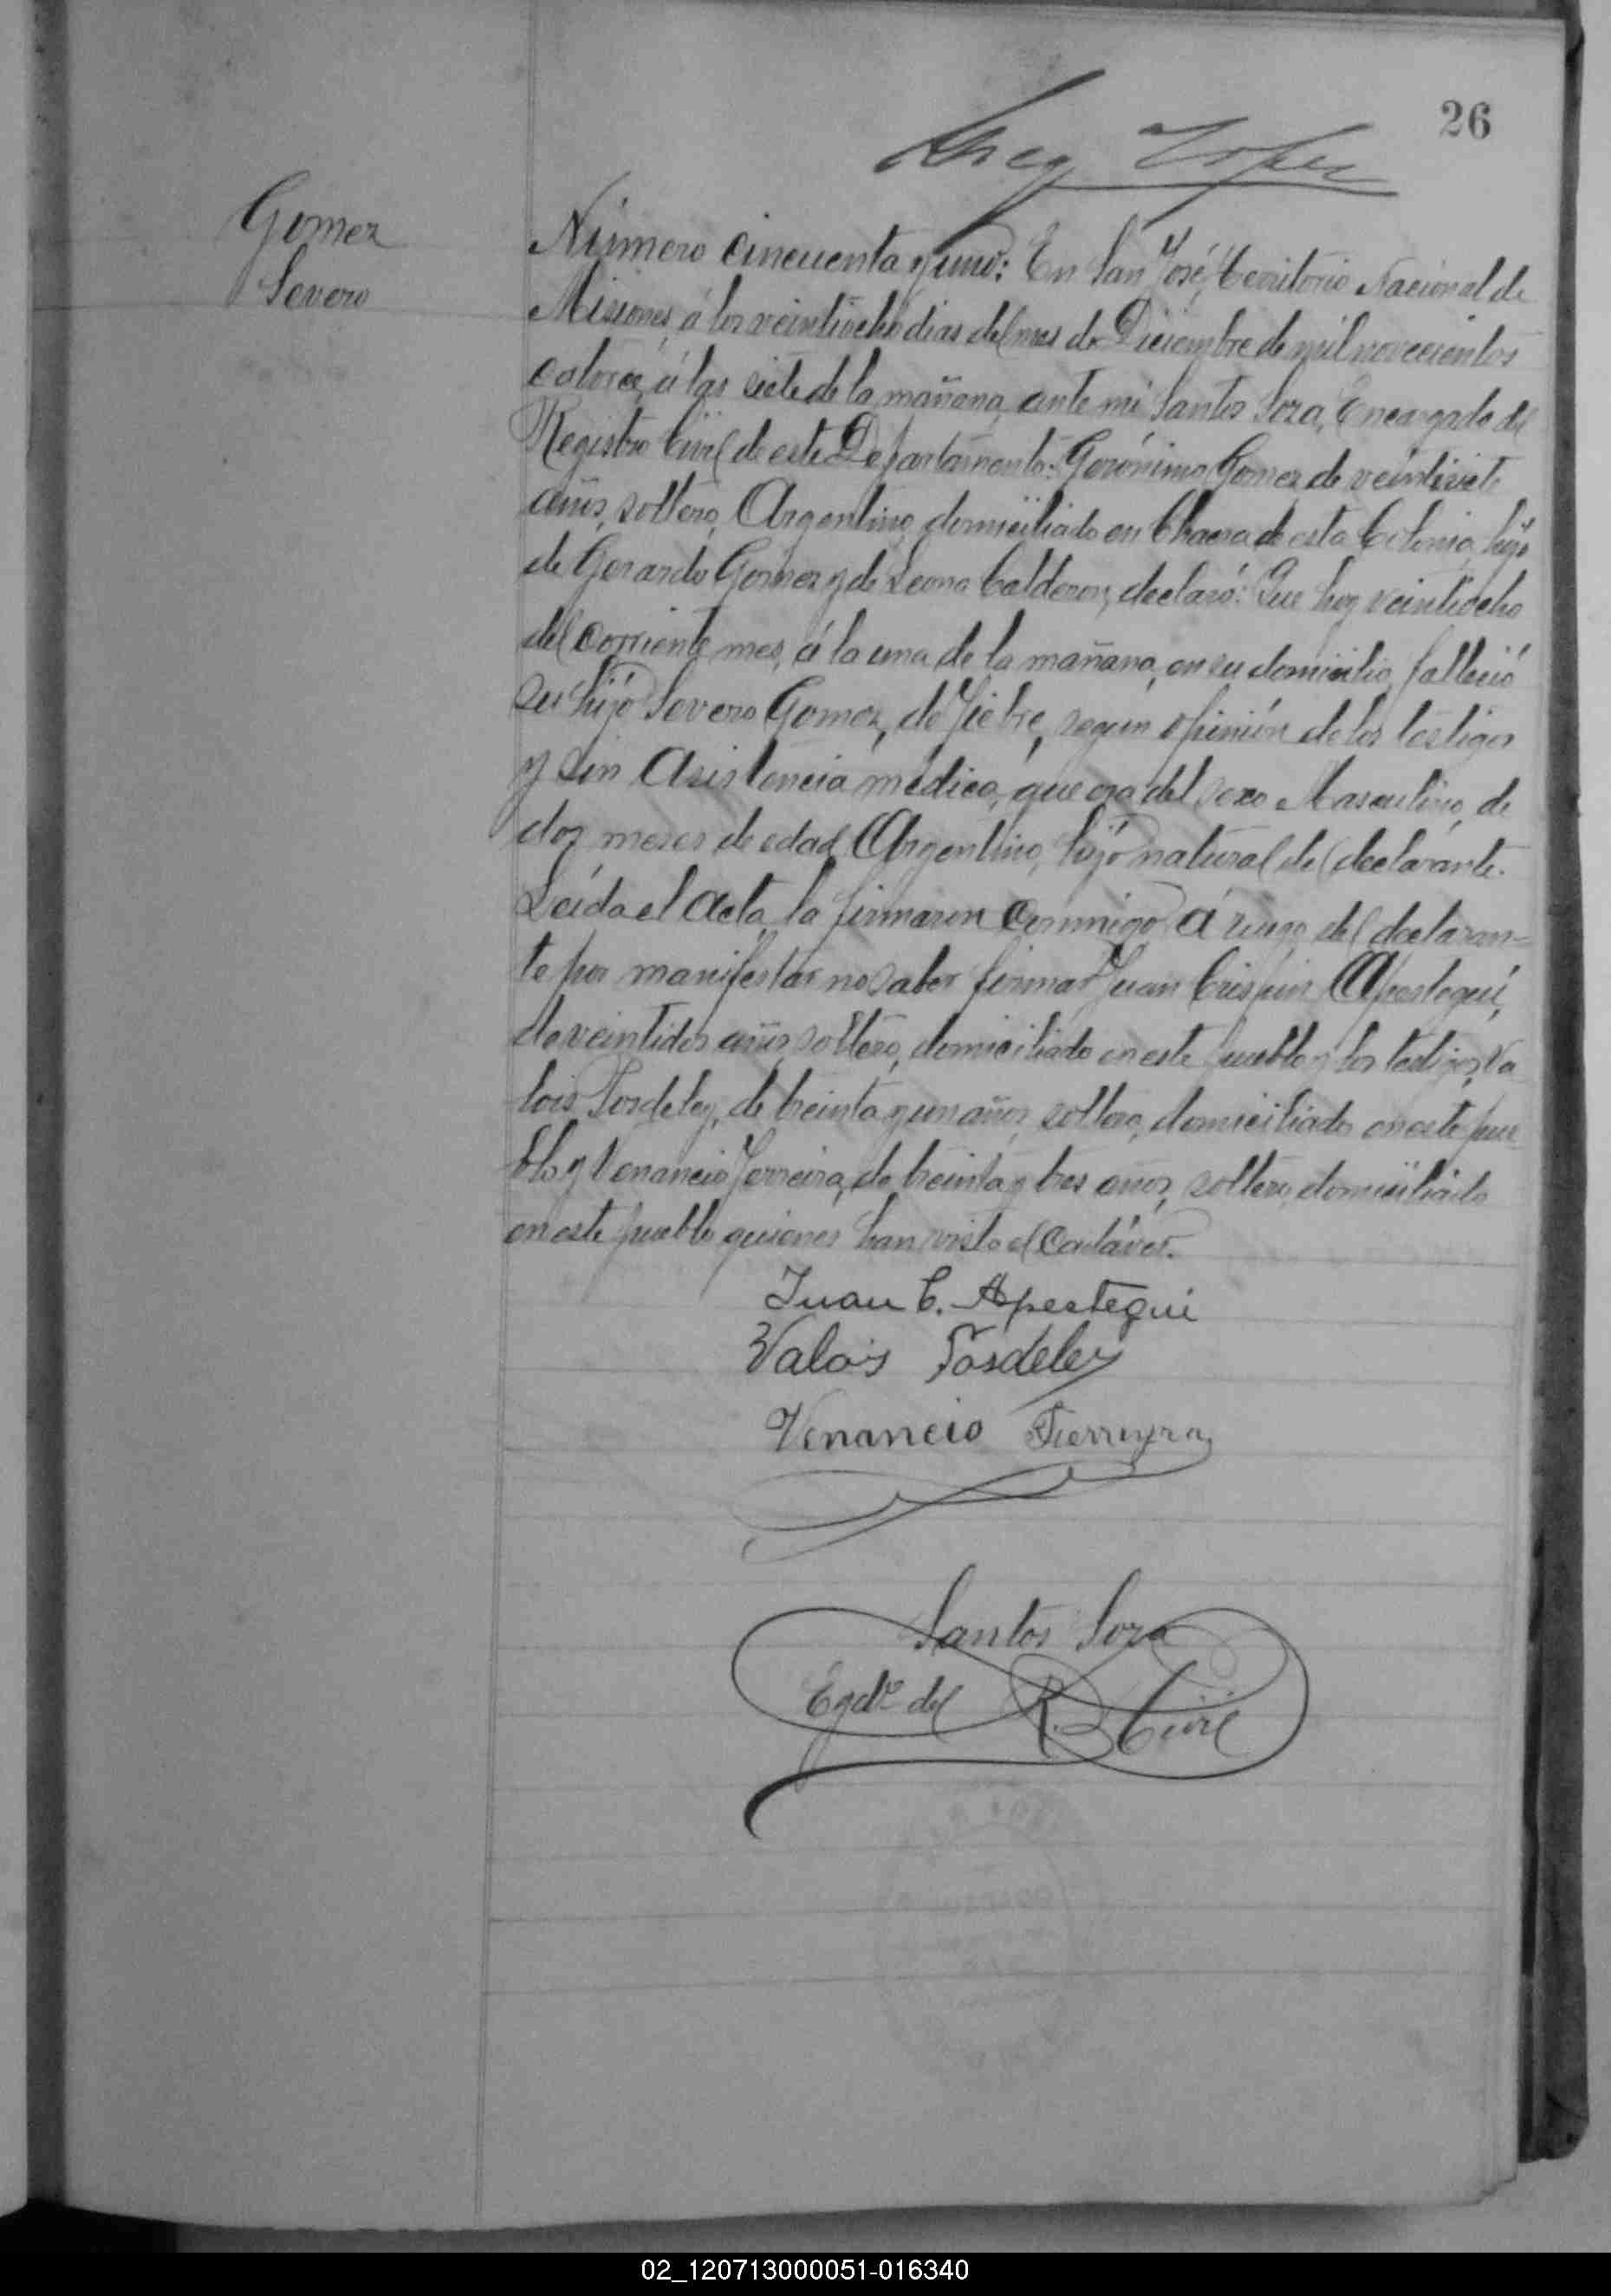 26
Lopez
Gomez
Severo
Número cincuenta y uno: En San José, Territorio Nacional de
Misiones, á los veintiocho dias del mes de Diciembre de mil novecientos
catorce, á las siete de la mañana, ante mi Santos Soza, Encargado del
Registro Civil de este Departamento: Gerónimo Gomez, de veintisiete
años, soltero, Argentino, domiciliado en Chacra de esta Colonia, hijo
de Gerardo Gomez y de Leona Calderon, declaró: Que hoy veintiocho
del corriente mes, á la una de la mañana, en su domicilio, falleció
su hijo Severo Gomez, de fiebre, segun opinión de los testigos
y sin asistencia médica, que era del sexo Masculino, de
dos meses de edad, Argentino, hijo natural del declarante.
Leída el acta, la firmaron conmigo á ruego del declaran-
te por manifestar no saber firmar Juan Crispin Apestegui,
de veintidos años, soltero, domiciliado en este pueblo y los testigos, Va
lois Fosdeley, de treinta y un años, soltero, domiciliado en este pue
blo y Venancio Ferreira, de treinta y tres años, soltero, domiciliado
en este pueblo quienes han visto el cadáver.
Juan C. Apestegui
Valois Fosdeley
Venancio Fierreyra
Santos Soza
Egdo. del R. Civil
02_120713000051-016340